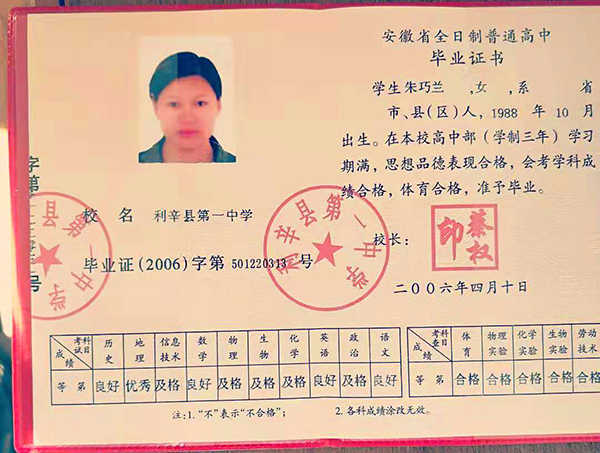 安徽省全日制普通高中
毕业证书
学生朱巧兰 ,女 ,系 省
市、县(区)人,1988 年 10 月
出生。在本校高中部(学制三年)学习
期满,思想品德表现合格,会考学科成
绩合格,体育合格,准予毕业。
校长: 蔡权印
二〇〇六年四月十日
校 名 利辛县第一中学
毕业证(2006)字第 501220313 号
利辛县第一中学
字第
号
县第一中学
科目 考试 成绩 历史 地理 信息技术 数学 物理 生物 化学 英语 政治 语文
等 第 良好 优秀 及格 良好 及格 及格 及格 良好 及格 良好
科目 考查 成绩 体育 物理实验 化学实验 生物实验 劳动技术
等 第 合格 合格 合格 合格 合格
注:1.“不”表示“不合格”; 2.各科成绩涂改无效。